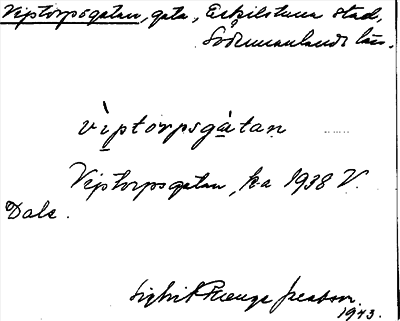 Viptorpsgatan, gata, Eskilstuna stad,
Södermanlands län.
vìptorpsgàtan
Viptorpsgatan, ka 1938 V.
Dale.
Sigbrit Plænge Jacobson.
1943.